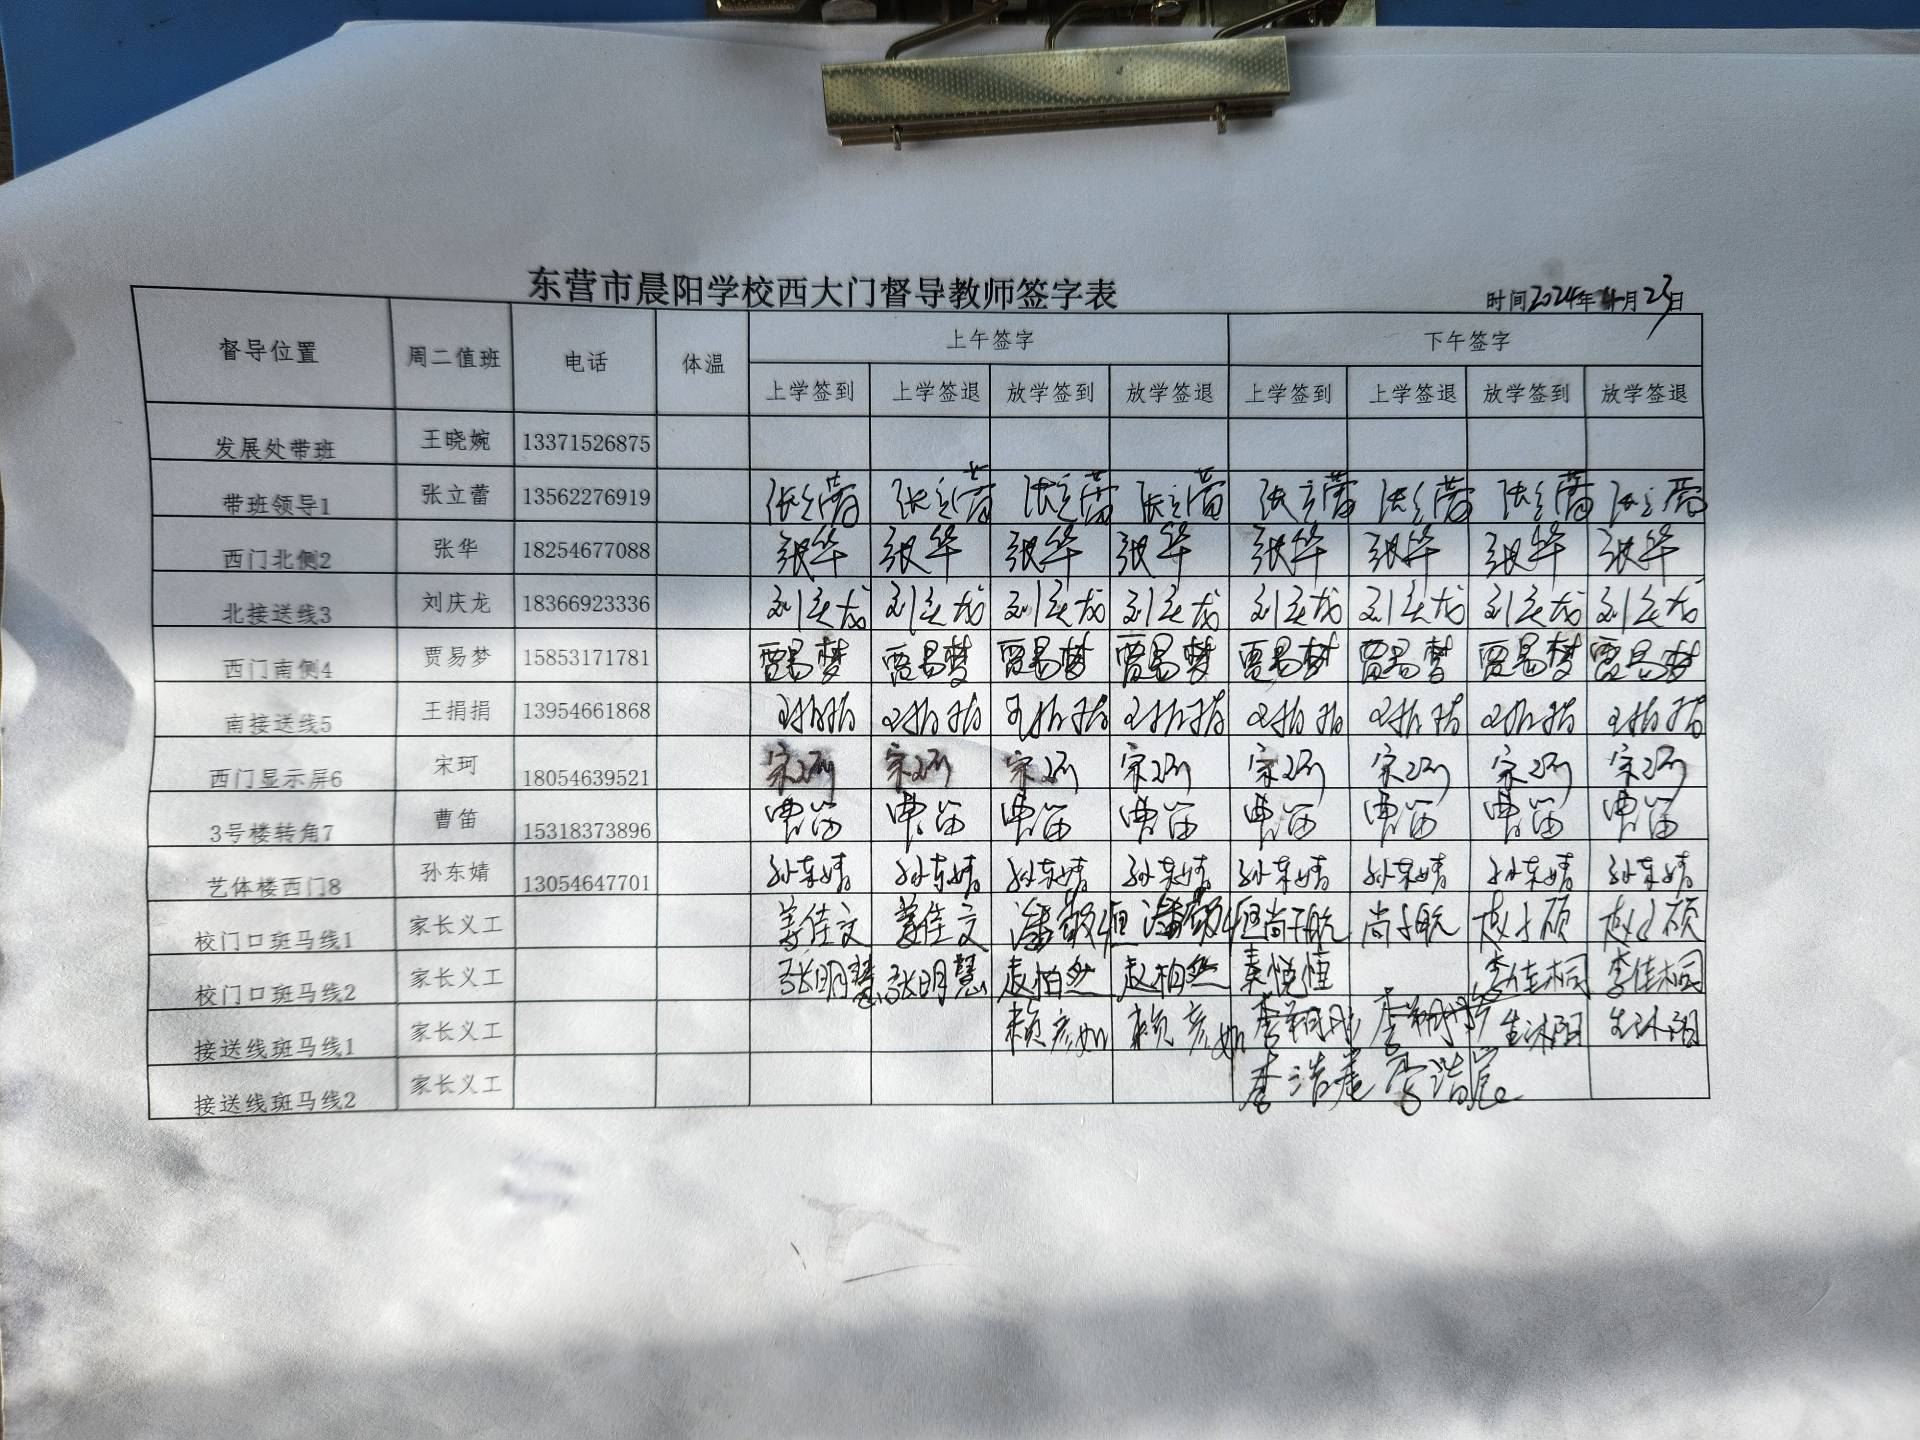 东营市晨阳学校西大门督导教师签字表
时间2024年4月23日
督导位置 周二值班 电话 体温 上午签字 下午签字
上学签到 上学签退 放学签到 放学签退 上学签到 上学签退 放学签到 放学签退
发展处带班 王晓婉 13371526875
带班领导1 张立蕾 13562276919 张立蕾 张立蕾 张立蕾 张立蕾 张立蕾 张立蕾 张立蕾 张立蕾
西门北侧2 张华 18254677088 张华 张华 张华 张华 张华 张华 张华 张华
北接送线3 刘庆龙 18366923336 刘庆龙 刘庆龙 刘庆龙 刘庆龙 刘庆龙 刘庆龙 刘庆龙 刘庆龙
西门南侧4 贾易梦 15853171781 贾易梦 贾易梦 贾易梦 贾易梦 贾易梦 贾易梦 贾易梦 贾易梦
南接送线5 王捐捐 13954661868 王捐捐 王捐捐 王捐捐 王捐捐 王捐捐 王捐捐 王捐捐 王捐捐
西门显示屏6 宋珂 18054639521 宋珂 宋珂 宋珂 宋珂 宋珂 宋珂 宋珂 宋珂
3号楼转角7 曹笛 15318373896 曹笛 曹笛 曹笛 曹笛 曹笛 曹笛 曹笛 曹笛
艺体楼西门8 孙东婧 13054647701 孙东婧 孙东婧 孙东婧 孙东婧 孙东婧 孙东婧 孙东婧 孙东婧
校门口斑马线1 家长义工 姜佳文 姜佳文 尚子航 尚子航 赵子硕 赵子硕
校门口斑马线2 家长义工 张明慧 张明慧 赵柏然 赵柏然 秦悦恒 李佳桐 李佳桐
接送线斑马线1 家长义工 赖彦如 赖彦如 生沐阳 生沐阳
接送线斑马线2 家长义工